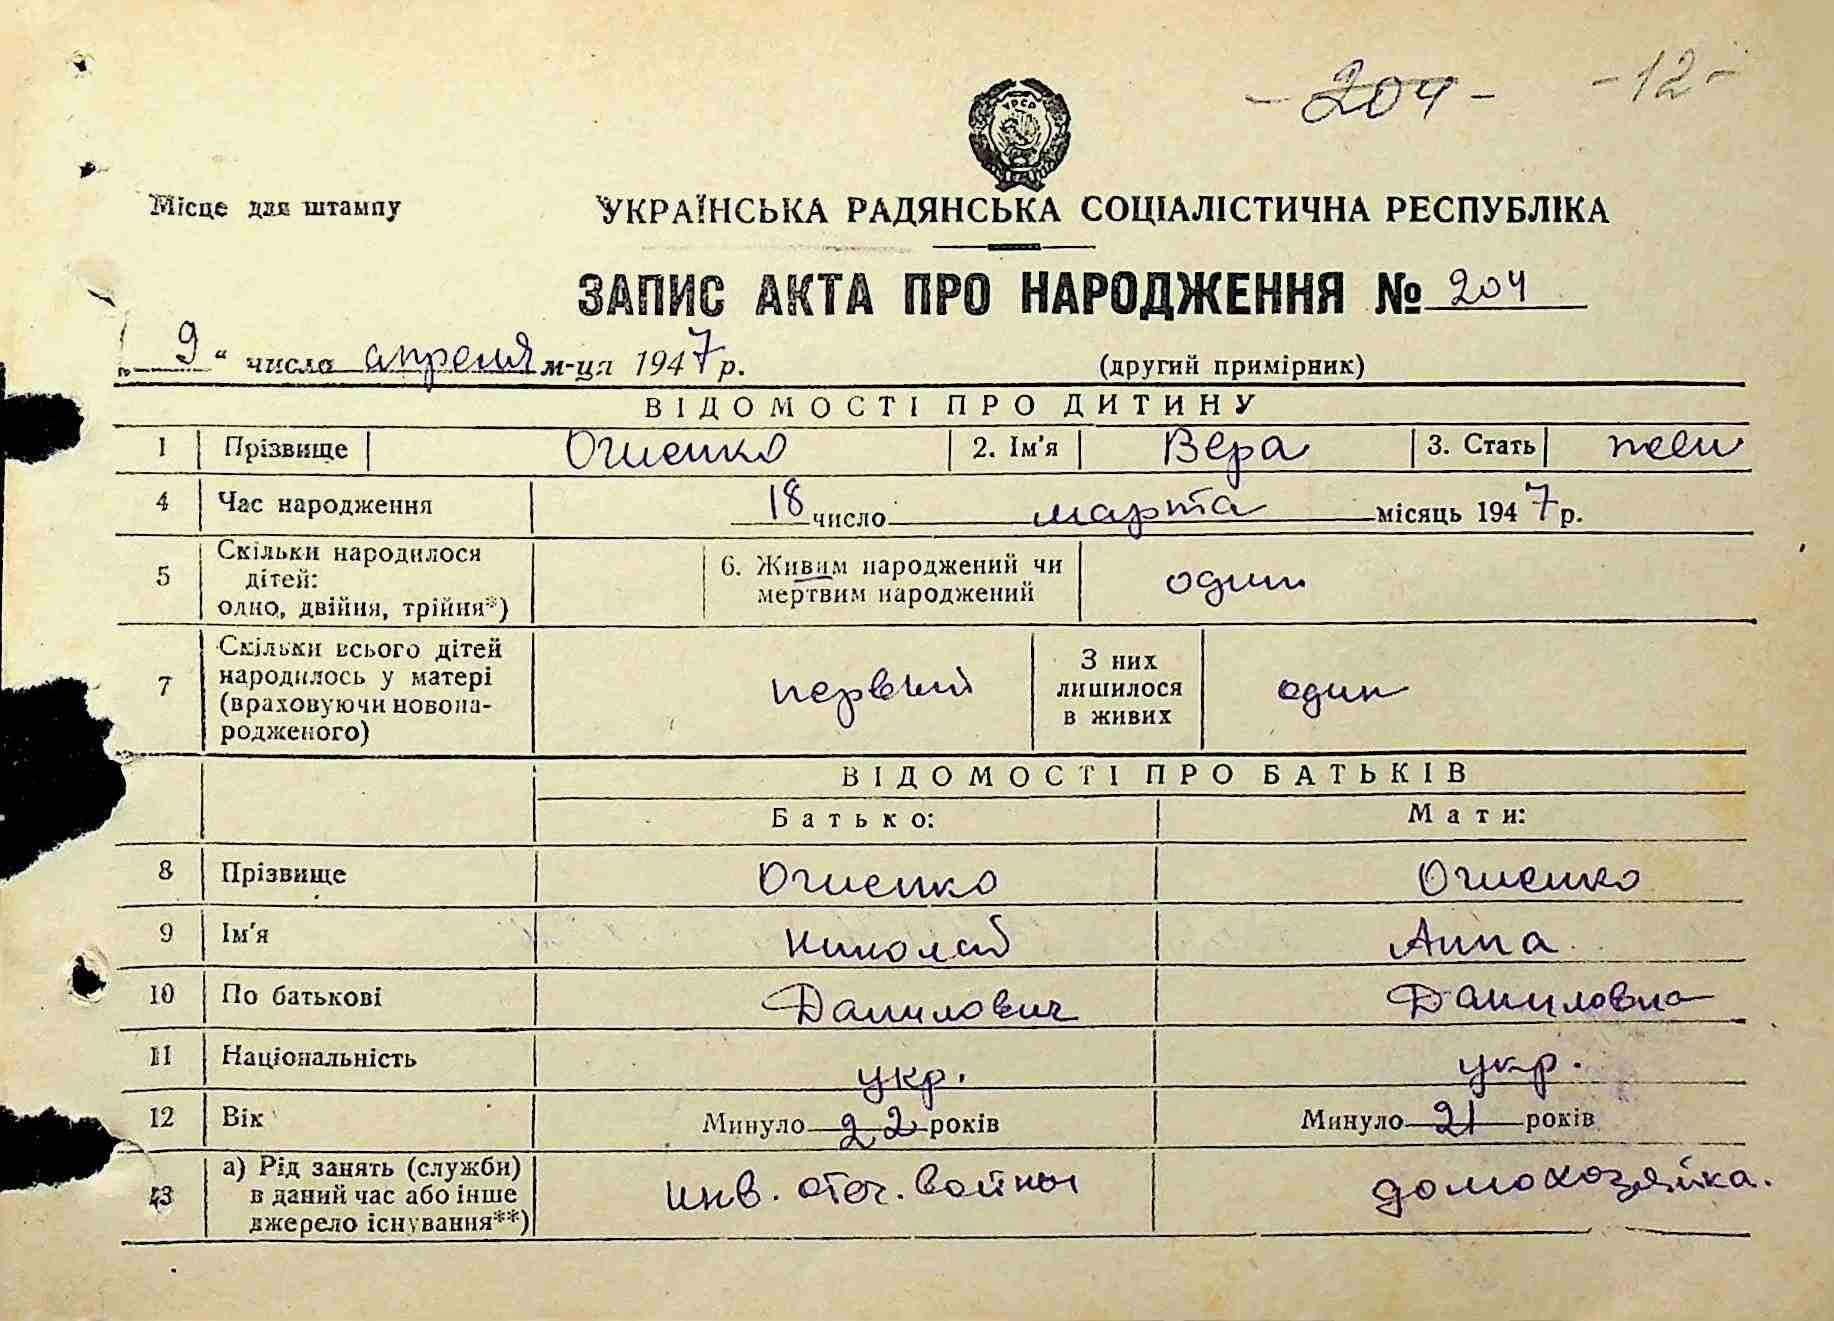 - 204 - - 12 -
УРСР
Місце для штампу
УКРАЇНСЬКА РАДЯНСЬКА СОЦІАЛІСТИЧНА РЕСПУБЛІКА
ЗАПИС АКТА ПРО НАРОДЖЕННЯ № 204
„ 9 “ число апреля м-ця 1947 р. (другий примірник)
ВІДОМОСТІ ПРО ДИТИНУ
1 Прізвище Огиенко 2. Ім'я Вера 3. Стать жен
4 Час народження 18 число марта місяць 1947 р.
5 Скільки народилося дітей: одно, двійня, трійня*) 6. Живим народжений чи мертвим народжений один
7 Скільки всього дітей народилось у матері (враховуючи новонародженого) первый З них лишилося в живих один
ВІДОМОСТІ ПРО БАТЬКІВ
Батько: Мати:
8 Прізвище Огиенко Огиенко
9 Ім'я Николай Анна
10 По батькові Данилович Даниловна
11 Національність укр. укр.
12 Вік Минуло 22 років Минуло 21 років
13 а) Рід занять (служби) в даний час або інше джерело існування**) инв. отеч. войны домохозяйка.